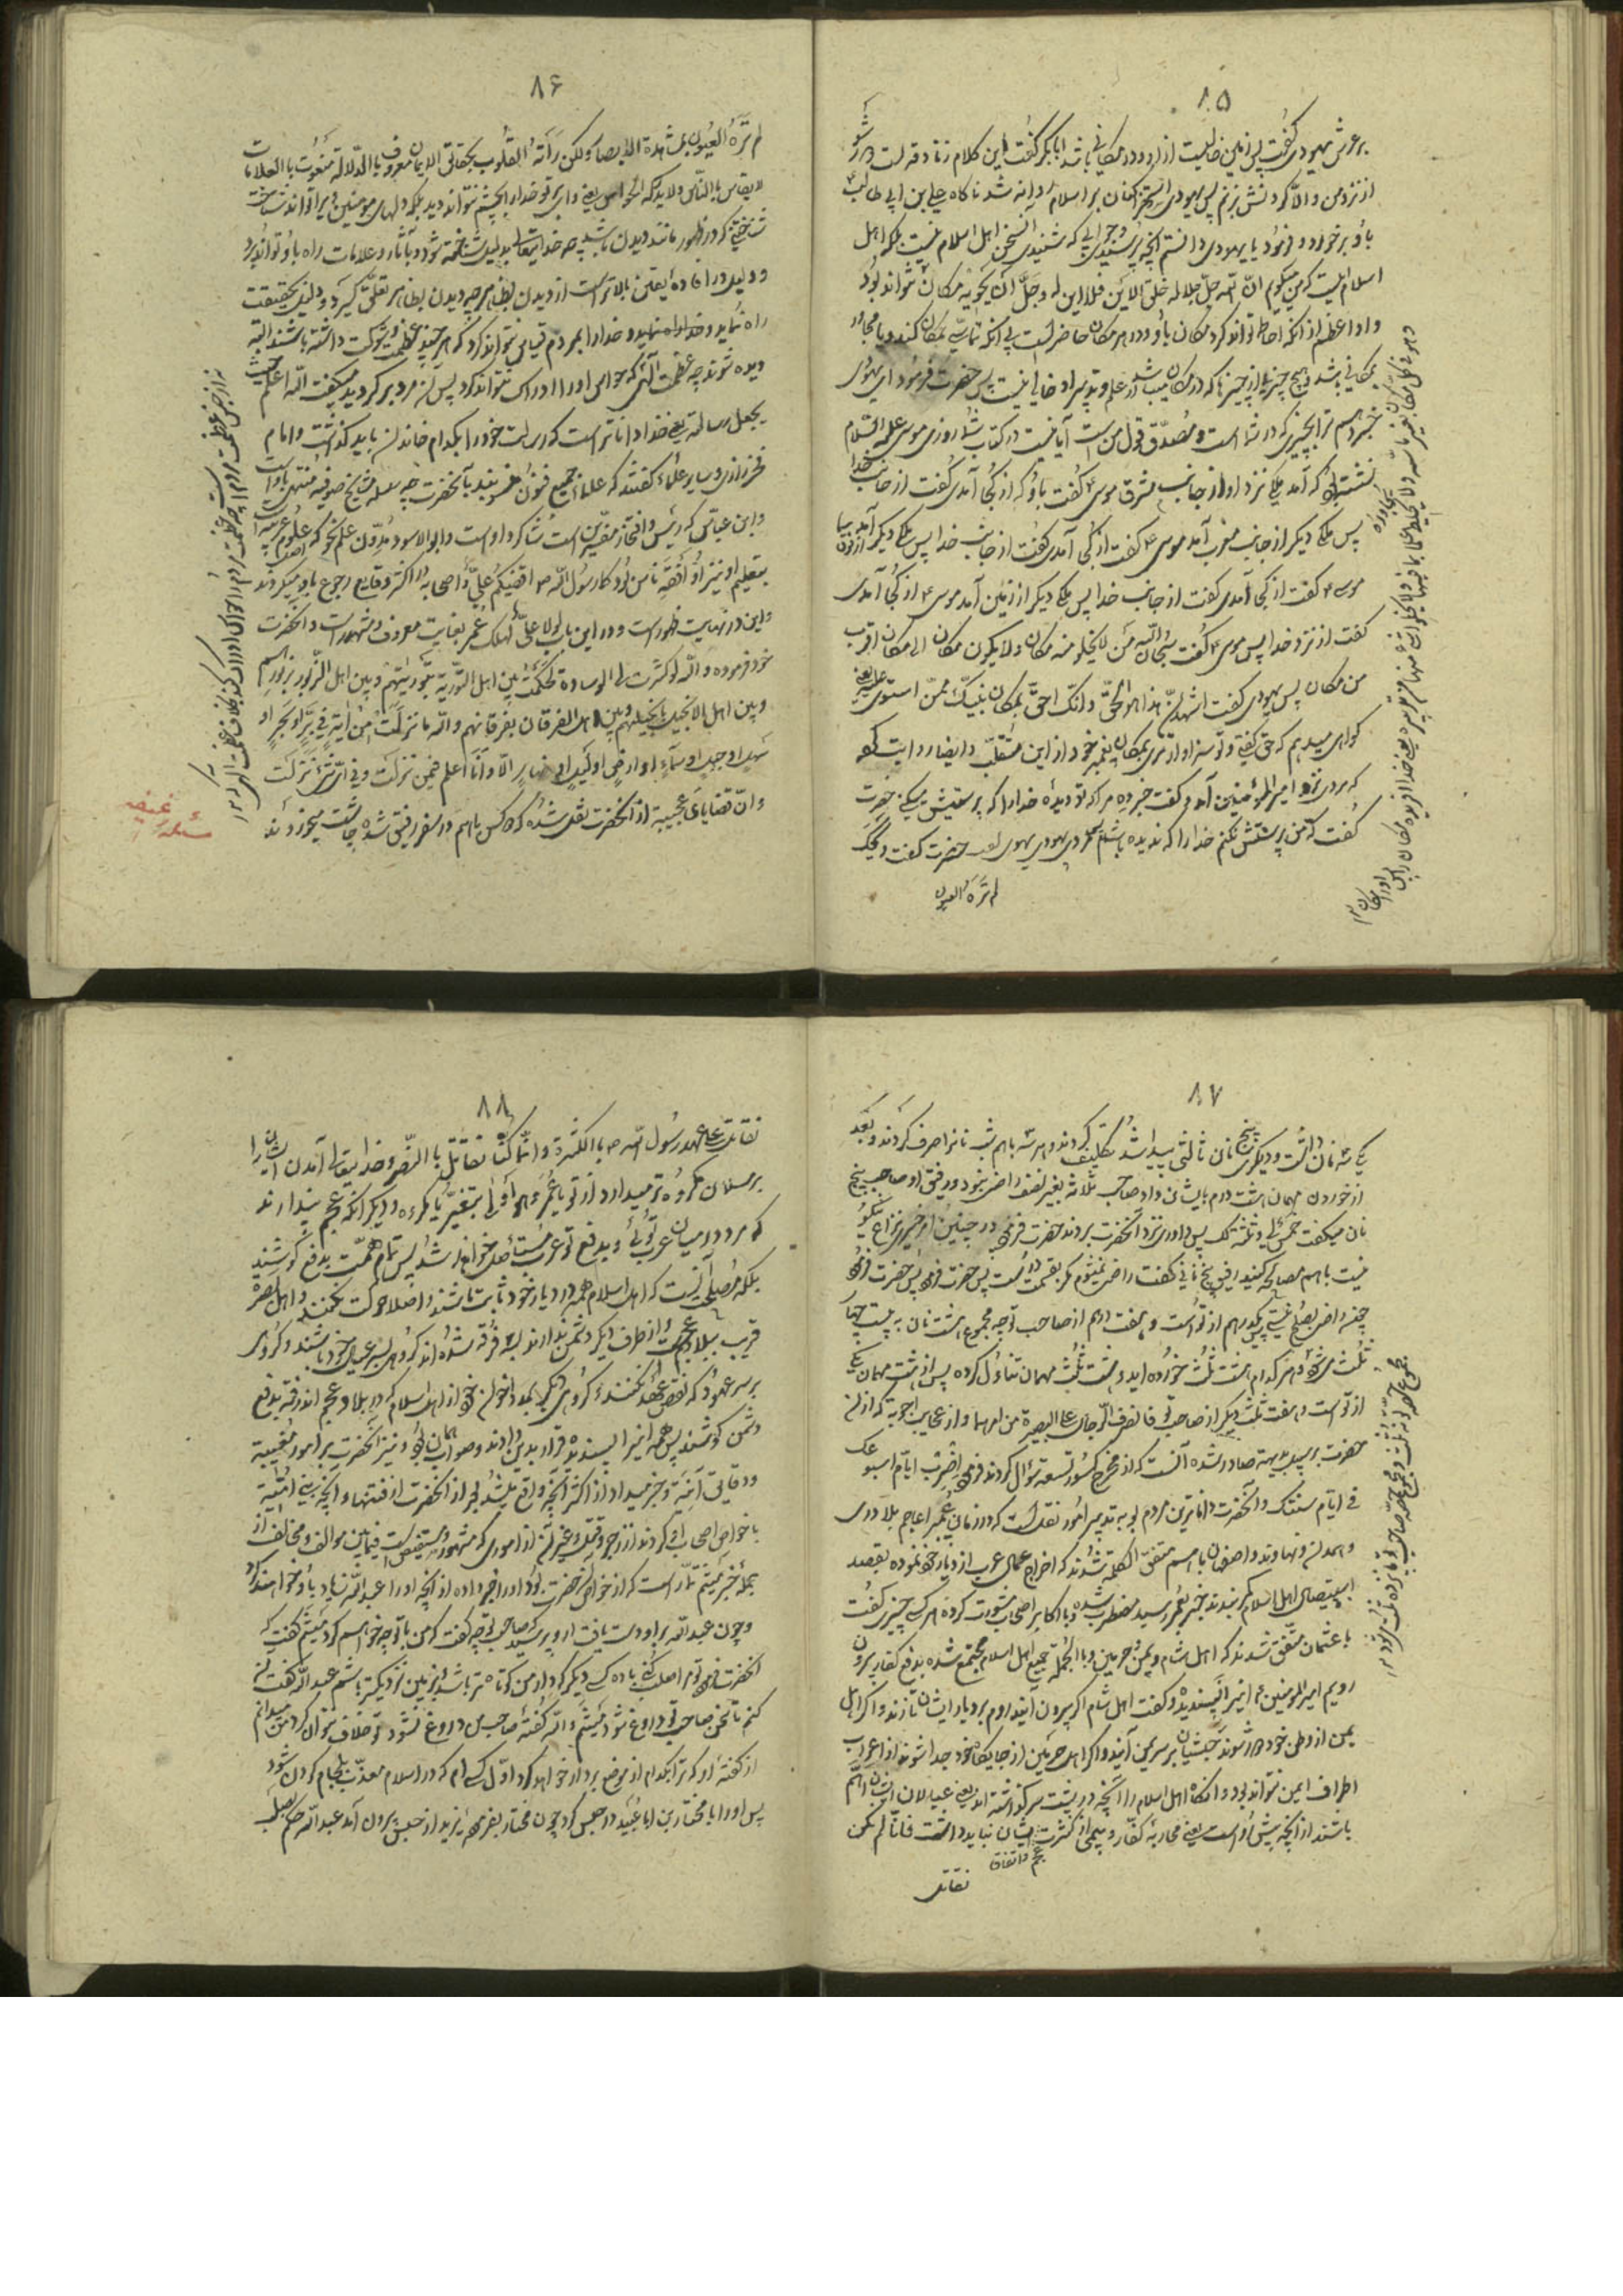 ۸۵
بر عرش یهودی گفت پس زمین خالیست از او و در مکانی باشد ابا بکر گفت این کلام زنادقه است دور شو
از نزد من والا گردنش بزنم پس یهودی استهزا کنان بر اسلام روانه شد ناگاه علی ابن ابی طالب
باو برخورد و فرمود یا یهودی دانستم آنچه پرسیدی و جوابی که شنیدی آن سخن اهل اسلام نیست بلکه اهل
اسلام اینست که من میگویم انّ الله جلّ جلاله خلق الاین فلا این له و جلّ ان یحویه مکان نتواند بود
و او اعظم از آنکه احاطه تواند کرد مکان باو و در هر مکان حاضر است بی آنکه تماسّی بمکان کند و یا مجاور
بمکانی باشد و هیچ چیز از چیزها که در مکان میباشد از علم و تدبیر او خالی نیست پس حضرت فرمود ای یهودی
خبر دهم ترا بچیزی که در شما است و مصدّق قول من است آیا نیست در کتاب شما روزی موسی علیه السلام
نشسته بود که آمد ملکی نزد او از جانب مشرق موسی گفت باو که از کجا آمدی گفت از جانب خدا
پس ملکی دیگر از جانب مغرب آمد موسی گفت از کجا آمدی گفت از جانب خدا پس ملکی دیگر آمد
موسی گفت از کجا آمدی گفت از جانب خدا پس ملکی دیگر از زمین آمد موسی از کجا آمدی
گفت از نزد خدا پس موسی گفت سبحان الله من لا یخلو منه مکان ولا یکون مکان الی مکان اقرب
من مکان پس یهودی گفت اشهد انّ هذا هو الحقّ و انّک احقّ بمکان نبیّک ممّن استولی علیه یعنی
گواهی میدهم که حق گفتی و تو سزاوارتری بمکان پیغمبر خود از این متقلّب و ایضا روایت
که مردی نزد امیر المؤمنین آمد و گفت خبر ده مرا که تو دیدهٔ خدا را که پرستیش میکنی حضرت
گفت که من پرستش نکنم خدا را که ندیده باشم حضرت گفت ویحک
لم تره العیون
۸۶
لم تره العیون بمشاهدة الابصار ولکن رأته القلوب بحقائق الایمان معروف بالدلالة منعوت بالعلامات
لا یقاس بالناس ولا یدرکه الحواس یعنی وای بر تو خدا را بچشم نتواند دید بلکه دلهای مومنین ویرا تواند شناخت
شناختی که در ظهور مانند دیدن باشد چه خدایتعالی بدلیل شناخته شود و بآثار و علامات راه باو تواند برد
و دلیل در افادهٔ یقین بالاتر است از دیدن بظاهر چه دیدن بظاهر تعلّق گیرد و دلیل بحقیقت
راه نماید و خدا را بمردم قیاس نتواند کرد که هر چند عظمت و شوکت داشته باشند البته
دیده شوند چه عظمت الهی که حواس او را ادراک نتواند کرد پس آن مرد بر گردید میگفت الله اعلم حیث
یجعل رسالته یعنی خدا دانا تر است که رسالت خود را بکدام خاندان باید گذاشت و امام
فخر رازی و سایر علماء گفتند که علماء جمیع فنون منسوبند بآنحضرت چه سلسله مشایخ صوفیه منتهی باو است
و ابن عباس که رئیس و افتخار مفسّرین است شاگرد او است و ابو الاسود مدوّن علم نحو که علوم عربیه است
بتعلیم او نیز او افقه ناس بود کما رسول الله اقضیکم علیّ و اصحابه در اکثر وقایع رجوع باو میکردند
و این در نهایت ظهور است و در این باب لولا علیّ لهلک عمر بغایت معروف و مشهور است و آنحضرت
خود فرموده والله لو کسرت لی الوسادة لحکمت بین اهل التوریة بتوریتهم و بین اهل الزبور بزبورهم
و بین اهل الانجیل بانجیلهم و بین اهل الفرقان بفرقانهم والله ما نزلت من آیة فی برّ او بحر او
سهل او جبل او سماء او ارض او لیل او نهار الا و انا اعلم فیمن نزلت و فی ایّ شیء نزلت
و از قضایای عجیبه از آنحضرت نقل شده که دو کس باهم در سفر رفیق شده چاشت میخوردند
مسئله غریبه
۸۷
یکی سه نان داشت و دیگری پنج نان ثالثی پیدا شد تکلیف کردند و هر سه باهم شب نانرا صرف کردند و بعد
از خوردن مهمان هشت درم بایشان داد صاحب ثلاثه بغیر نصف راضی نبود و رفیق او صاحب پنج
نان میگفت خمس لی و ثلثه لک پس داوری نزد آنحضرت بردند حضرت فرمود در چنین امر خیری نزاع نیکو
نیست باهم مصالحه کنید رفیق ثانی گفت راضی نمیشوم مگر بقسمت راست پس حضرت فرمود
چونکه راضی بصلح نیستی پس یکدرهم از تو است و هفت درهم از صاحب تو چه مجموع هشت نان بیست و چهار
ثلث میشود و هر کدام هشت ثلث خورده اید و هشت ثلث مهمان تناول کرده پس از هشت مهمان یکی
از تو است و هفت ثلث دیگر از صاحب تو فانصرف الرجلان علی البصیرة من امرهما و از عجایب اجوبه که از آن
حضرت بر سبیل بدیهه صادر شده آنست که از مخرج کسور تسعه سؤال کردند فرمود اضرب ایام اسبوعک
فی ایام سنتک و آنحضرت داناترین مردم بود بتدبیر امور نقل است که در زمان عمر اعاجم بلاد ری
و همدان و نهاوند و اصفهان باهم متفق الکلمه شدند که اخراج عمال عرب از دیار خود نموده بقصد
استیصال اهل اسلام کمر بندند خبر بعمر رسید مضطرب شده با اکابر اصحاب مشورت کرده هر کسی چیزی گفت
با عثمان متفق شدند که اهل شام و یمن و حرمین و بالجمله جمیع اهل اسلام مجتمع شده بدفع کفار بیرون
رویم امیر المومنین این را نپسندیده و گفت اهل شام اگر بیرون آیند روم بر دیار ایشان تازند و اگر اهل
یمن از وطن خود دور شوند حبشیان بر سر یمن آیند و اگر اهل حرمین از جایگاه خود جدا شوند از اعراب
اطراف ایمن نتواند بود و آنگاه اهل اسلام را آنچه در پشت سر گذاشته اند یعنی عیالان ایشان اهم
باشند از آنچه پیش او است یعنی محاربهٔ کفار و بیمی از کثرت ایشان نباید داشت فانّا لم نکن
عجم و اتفاق
نقاتل
۸۸
نقاتل علی عهد رسول الله بالکثرة و انما کنا نقاتل بالنصر و خدایتعالی آمدن ایشان را
بر مسلمان مکروه تر میدارد از تو یا عمر و هو اولی بتغییر ما یکره و دیگر آنکه عجم پندارند
که مرد در میان عرب توئی و بدفع تو عرب مستأصل خواهند شد پس تمام همّت بدفع تو کوشند
بلکه مصلحت آنست که اهل اسلام همه در دیار خود ثابت باشند و اصلا حرکت نکنند و اهل بصره
قریب ببلاد عجمند و از طرف دیگر دشمن ندارند بسه فرقه شده اند گروهی بر سر عیال خود باشند و گروهی
بر سر عهود که نقض عهد نکنند و گروهی دیگر بمدد اخوان خود از اهل اسلام که در بلاد عجم اند رفته بدفع
دشمن کوشند پس همه اینرا پسندیده قرار بدین دادند و صواب همان بود و نیز آنحضرت بر امور مغیبه
و دقایق آتیه و خبر میداد از اکثر آنچه واقع میشد بعد از آنحضرت از فتنها و آنچه بنی امیّه
با خواص اصحاب او کردند از زجر و قتل و غیر آن از اموری که مشهور و مستفیض است فیمابین موالف و مخالف از
جمله خبر میثم تمّار است که از خواص آنحضرت بود و او را خبر داده از آنچه او را عبید الله زیاد باو خواهد کرد
و چون عبید الله بر او دست یافت از او پرسید که صاحب تو چه گفت که من با تو چه خواهم کرد میثم گفت که
آنحضرت فرمود تو مرا صلب کنی با ده کس دیگر که دار من کوتاه تر باشد و بزمین نزدیکتر باشم عبید الله گفت آن
کنم تا سخن صاحب تو دروغ شود میثم والله گفته صاحب من دروغ نشود و خلاف نتوان کرد من میدانم
از گفته او که ترا بکدام از موضع بر دار خواهد کرد و اول کسی ام که در اسلام معذّب بلجام کردن شود
پس او را با مختار بن ابا عبید در حبس کرد چون مختار بفرمودهٔ یزید از حبس بیرون آمد عبید الله حکم بصلب